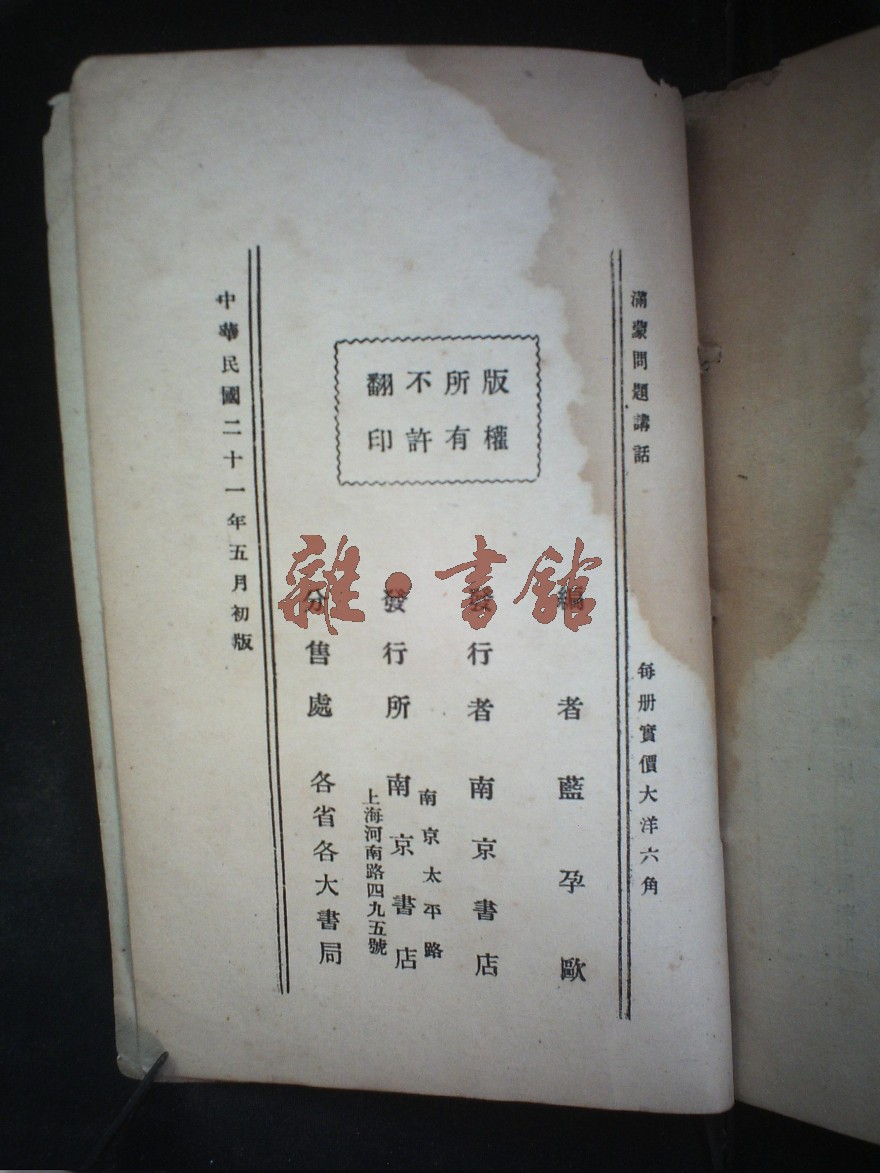 滿蒙問題講話
每册實價大洋六角
版權所有
不許翻印
編者藍孕歐
發行者南京書店
發行所南京書店
南京太平路
上海河南路四九五號
分售處各省各大書局
中華民國二十一年五月初版
雜·書館